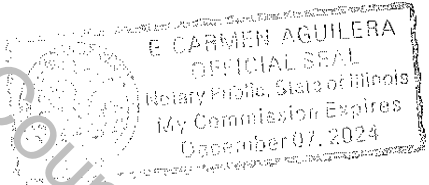 E CARMEN AGUILERA
OFFICIAL SEAL
Notary Public, State of Illinois
My Commission Expires
December 07, 2024